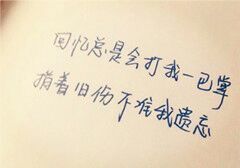 回忆总是会打我一巴掌
指着旧伤不准我遗忘